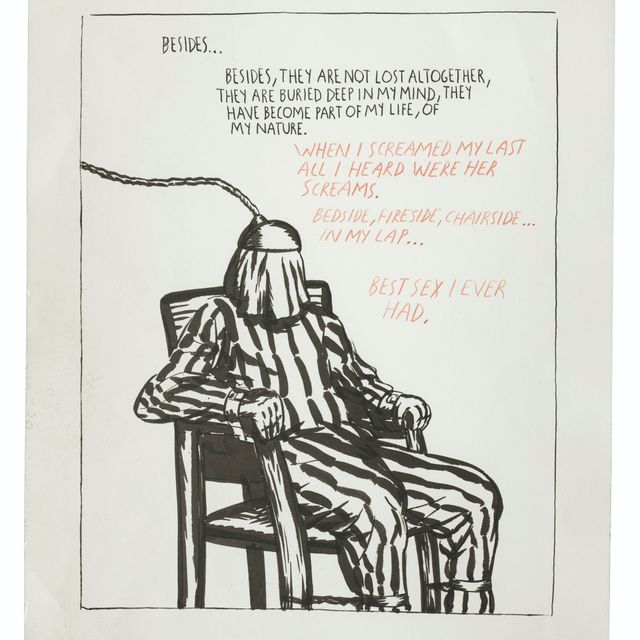 BESIDES...
BESIDES, THEY ARE NOT LOST ALTOGETHER,
THEY ARE BURIED DEEP IN MY MIND, THEY
HAVE BECOME PART OF MY LIFE, OF
MY NATURE.
WHEN I SCREAMED MY LAST
ALL I HEARD WERE HER
SCREAMS.
BEDSIDE, FIRESIDE, CHAIRSIDE...
IN MY LAP...
BEST SEX I EVER
HAD.